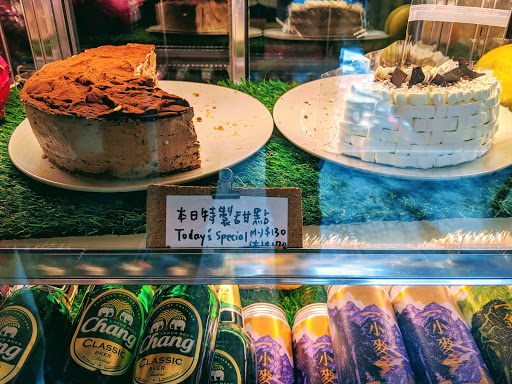 本日特製甜點
Today's Special (小) $130
Chang
CLASSIC
BEER
Chang
CLASSIC
BEER
Chang
小麥
小麥
小麥
小麥